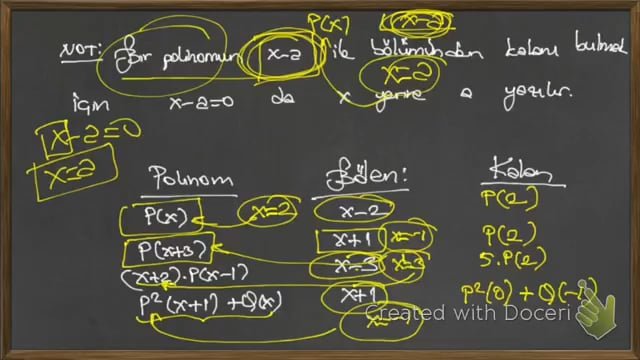 P(x) x-a
NOT: Bir polinomun x-a ile bölümünden kalanı bulmak
x=a
için x-a=0 da x yerine a yazılır.
x-a=0
x=a
Polinom Bölen: Kalan
P(x) x=2 x-2 P(2)
P(x+3) x+1 x=-1 P(2)
(x+2).P(x-1) x-3 x=3 5.P(2)
P²(x+1)+Q(x) x+1 P²(0)+Q(-1)
x=-1
Created with Doceri